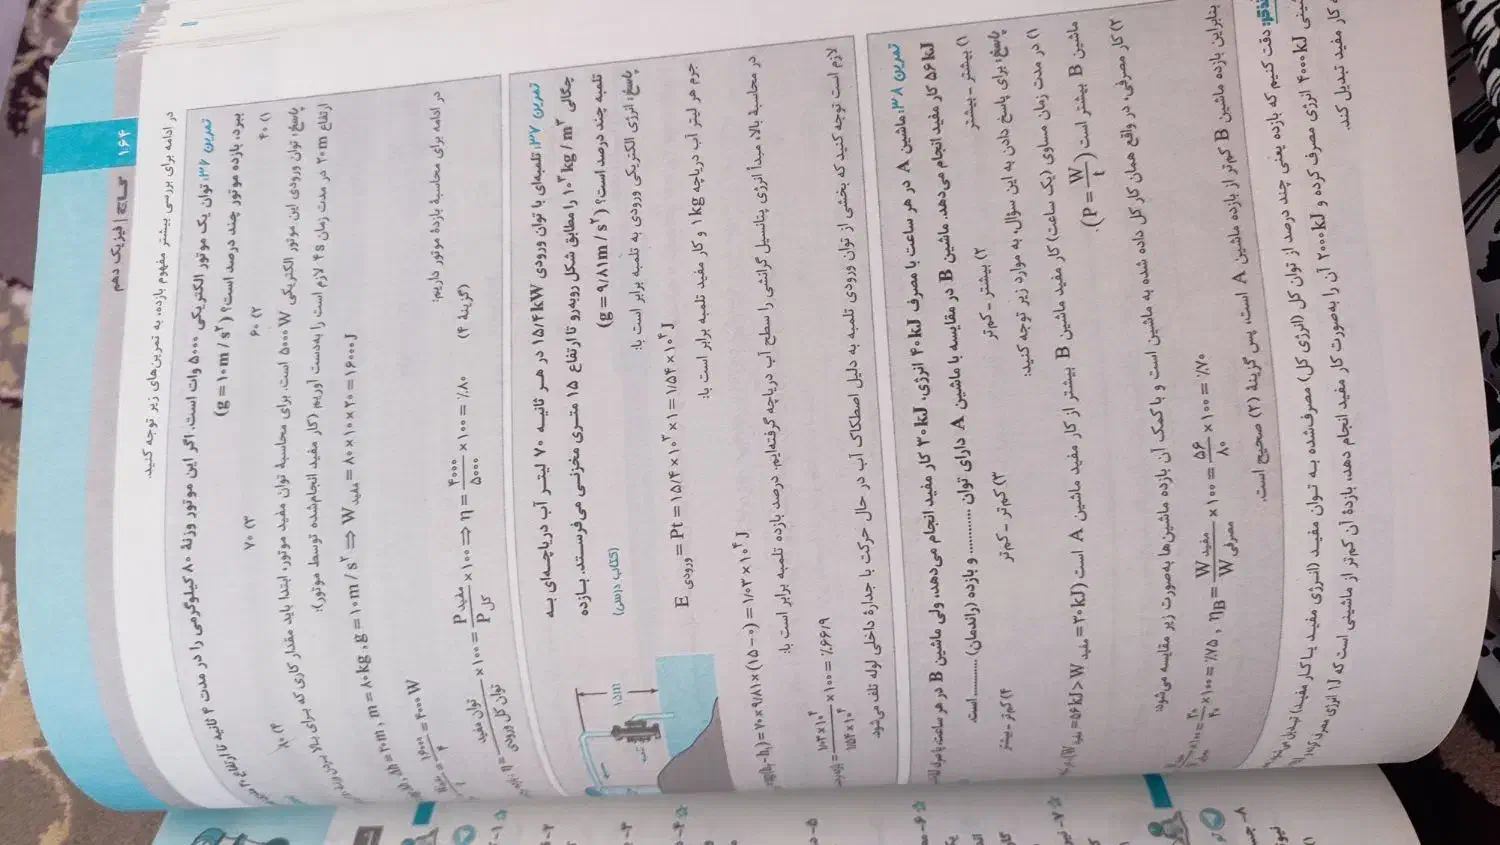 ۱۶۴
گاج | فیزیک دهم
در ادامه برای بررسی بیشتر مفهوم بازده، به تمرین‌های زیر توجه کنید.
تمرین ۳۶: توان یک موتور الکتریکی ۵۰۰۰ وات است. اگر این موتور وزنهٔ ۸۰ کیلوگرمی را در مدت ۴ ثانیه تا ارتفاع ۲۰
ببرد، بازده موتور چند درصد است؟ (g = ۱۰ m / s²)
۱) ۴۰
۲) ۶۰
۳) ۷۰
۴) ۸۰
پاسخ: توان ورودی این موتور الکتریکی ۵۰۰۰ W است. برای محاسبهٔ توان مفید موتور، ابتدا باید مقدار کاری که برای بالا بردن
ارتفاع ۲۰ m در مدت زمان ۴ s لازم است را به‌دست آوریم (کار مفید انجام‌شده توسط موتور):
h = ۲۰ m , m = ۸۰ kg , g = ۱۰ m / s² ⇒ W مفید = ۸۰ × ۱۰ × ۲۰ = ۱۶۰۰۰ J
۱۶۰۰۰ / ۴ = ۴۰۰۰ W
در ادامه برای محاسبهٔ بازده موتور داریم:
η = توان مفید / توان کل ورودی × ۱۰۰ = P مفید / P کل × ۱۰۰ ⇒ η = ۴۰۰۰ / ۵۰۰۰ × ۱۰۰ = ٪۸۰ (گزینهٔ ۴)
تمرین ۳۷: تلمبه‌ای با توان ورودی ۱۵/۴ kW در هر ثانیه ۷۰ لیتر آب دریاچه‌ای به
چگالی ۱۰³ kg / m³ را مطابق شکل روبه‌رو تا ارتفاع ۱۵ متری مخزنی می‌فرستد. بازده
تلمبه چند درصد است؟ (g = ۹/۸۱ m / s²)
(کتاب درسی)
۱۵m
پاسخ: انرژی الکتریکی ورودی به تلمبه برابر است با:
E ورودی = Pt = ۱۵/۴ × ۱۰³ × ۱ = ۱/۵۴ × ۱۰⁴ J
جرم هر لیتر آب دریاچه ۱ kg و کار مفید تلمبه برابر است با:
(h₂ − h₁) = ۷۰ × ۹/۸۱ × (۱۵ − ۰) = ۱/۰۳ × ۱۰⁴ J
در محاسبهٔ بالا، مبدأ انرژی پتانسیل گرانشی را سطح آب دریاچه گرفته‌ایم. درصد بازده تلمبه برابر است با:
۱/۰۳ × ۱۰⁴ / ۱/۵۴ × ۱۰⁴ × ۱۰۰ = ٪۶۶/۹
لازم است توجه کنید که بخشی از توان ورودی تلمبه به دلیل اصطکاک آب در حال حرکت با جدارهٔ داخلی لوله تلف می‌شود.
تمرین ۳۸: ماشین A در هر ساعت با مصرف ۴۰ kJ انرژی، ۳۰ kJ کار مفید انجام می‌دهد، ولی ماشین B در هر ساعت با
۵۶ kJ کار مفید انجام می‌دهد. ماشین B در مقایسه با ماشین A دارای توان ............ و بازده (راندمان) ............ است.
۱) بیشتر - بیشتر
۲) بیشتر - کم‌تر
۳) کم‌تر - کم‌تر
۴) کم‌تر - بیشتر
پاسخ: برای پاسخ دادن به این سؤال، به موارد زیر توجه کنید:
۱) در مدت زمان مساوی (یک ساعت) کار مفید ماشین B بیشتر از کار مفید ماشین A است (W مفید = ۵۶ kJ > W مفید = ۳۰ kJ)
ماشین B بیشتر است (P = W / t).
۲) کار مصرفی، در واقع همان کار کل داده شده به ماشین است و با کمک آن بازده ماشین‌ها به‌صورت زیر مقایسه می‌شود:
۳۰ / ۴۰ × ۱۰۰ = ٪۷۵ , η_B = W مفید / W مصرفی × ۱۰۰ = ۵۶ / ۸۰ × ۱۰۰ = ٪۷۰
بنابراین بازده ماشین B کم‌تر از بازده ماشین A است، پس گزینهٔ (۲) صحیح است.
تذکر: دقت کنیم که بازده یعنی چند درصد از توان کل (انرژی کل) مصرف‌شده به توان مفید (انرژی مفید یا کار مفید) تبدیل
۴۰۰۰ kJ انرژی مصرف کرده و ۲۰۰۰ kJ آن را به‌صورت کار مفید انجام دهد، بازدهٔ آن کم‌تر از ماشینی است که ۱ J انرژی مصرف
کار مفید تبدیل کند.